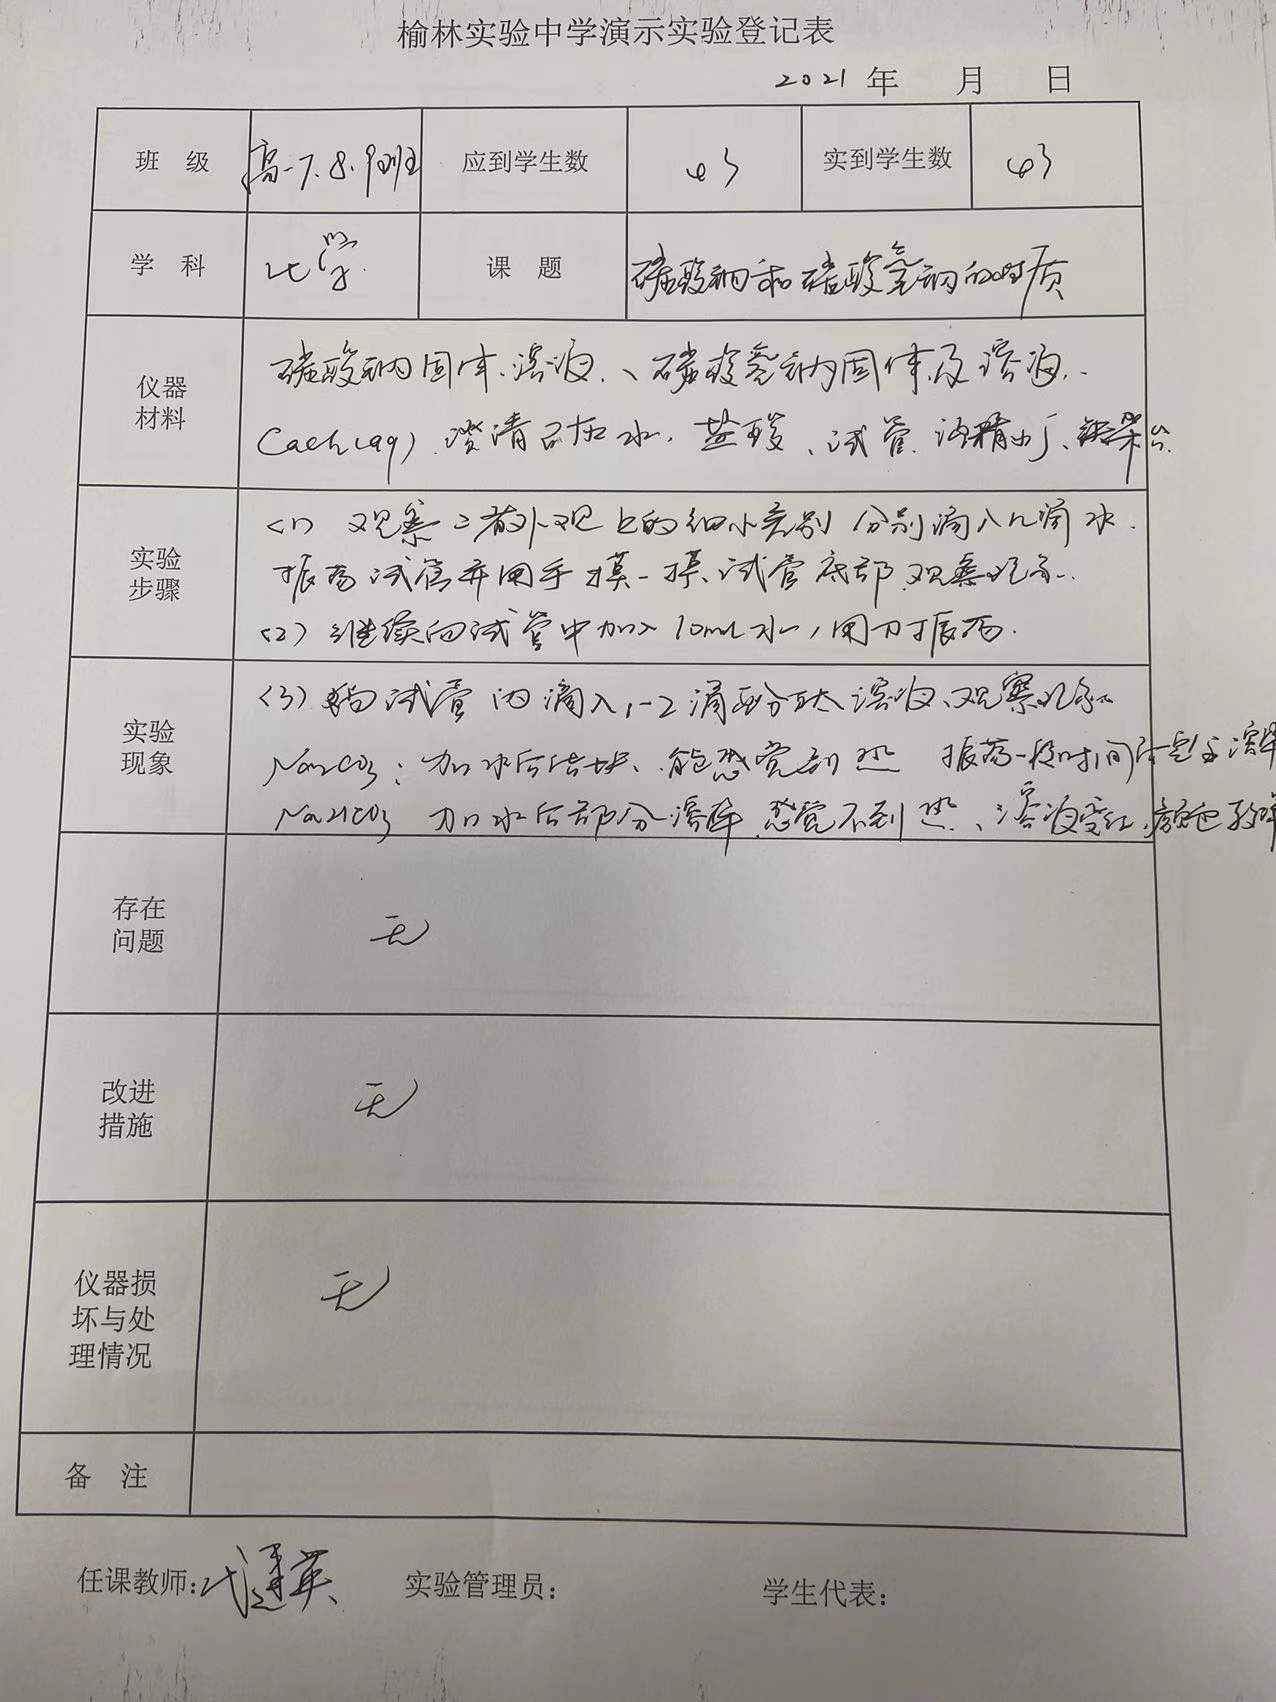 榆林实验中学演示实验登记表
2021 年 月 日
班 级 高一7.8.9班 应到学生数 43 实到学生数 43
学 科 化学 课 题 碳酸钠和碳酸氢钠的性质
仪器材料 碳酸钠固体、溶液、、碳酸氢钠固体及溶液、
CaCl2(aq) 澄清石灰水、盐酸、试管、酒精灯、铁架台
实验步骤 (1) 观察二者外观上的细小差别 分别滴入几滴水.
振荡试管并用手摸一摸试管底部,观察现象.
(2) 继续向试管中加入10mL水,用力振荡.
实验现象 (3) 向试管内滴入1-2滴酚酞溶液、观察现象
Na2CO3: 加水后结块、能感觉到热 振荡一段时间后
NaHCO3 加水后部分溶解 感觉不到热、溶液变红,颜色较
存在问题 无
改进措施 无
仪器损坏与处理情况 无
备 注
任课教师: 建英 实验管理员: 学生代表: